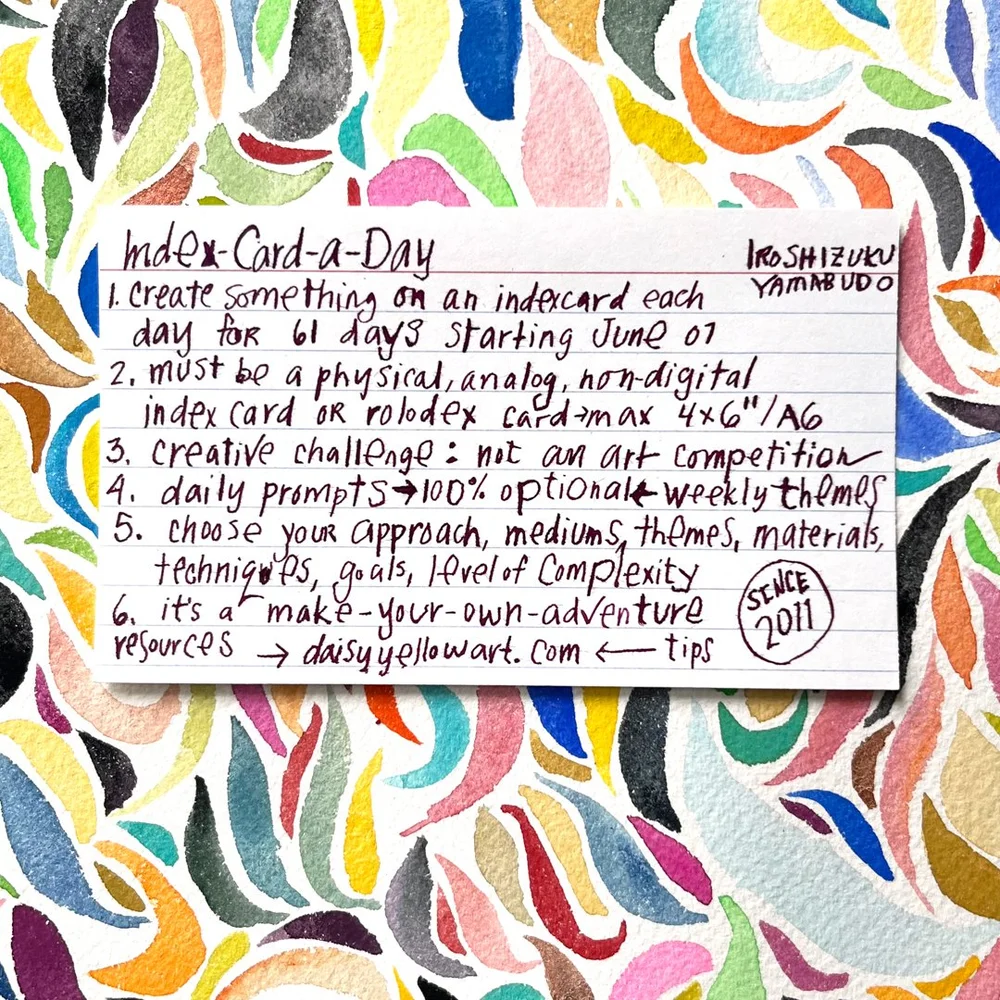 Index-Card-a-Day
IROSHIZUKU
YAMABUDO
1. create something on an indexcard each
day for 61 days starting June 01
2. must be a physical, analog, non-digital
index card or rolodex card→max 4x6"/A6
3. creative challenge: not an art competition
4. daily prompts→100% optional←weekly themes
5. choose your approach, mediums, themes, materials,
techniques, goals, level of complexity
6. it's a make-your-own-adventure
SENCE
2011
resources → daisyyellowart.com ← tips